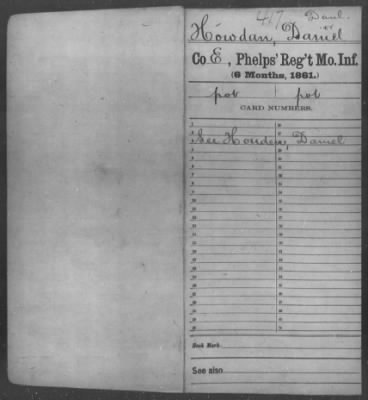 417 Danl.
Howdan, Daniel
Co. E, Phelps' Reg't Mo. Inf.
(6 Months, 1861.)
CARD NUMBERS.
See Houden, Daniel
Book Mark:
See also